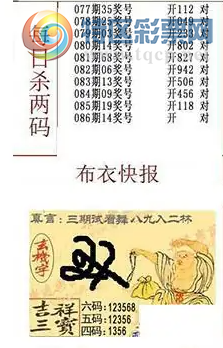 每日杀两码
077期35奖号 开112 对
078期25奖号 开049 对
079期03奖号 开233 对
080期14奖号 开802 对
081期58奖号 开827 对
082期06奖号 开942 对
083期13奖号 开506 对
084期09奖号 开456 对
085期19奖号 开118 对
086期14奖号 开 对
布衣快报
真言：三期试看舞八九入二杯
玄機字
吉祥三寶
六码：123568
五码：12356
四码：1356